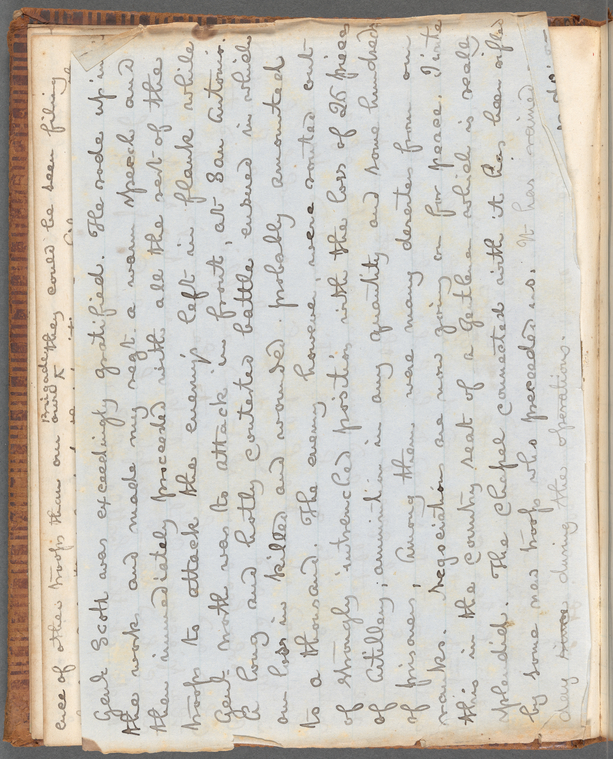 ence of other troops than our own Brigade & they could be seen filing
Genl Scott was exceedingly gratified. He rode up in
the work and made my regt a warm speech and
then immediately proceeded with all the rest of the
troops to attack the enemy's left in flank while
Genl. Worth was to attack in front, at San Antonio.
A long and hotly contested battle ensued in which
our loss in killed and wounded probably amounted
to a thousand. The enemy however, were routed out
of strongly intrenched position with the loss of 25 pieces
of Artillery; amunition in any quantity and some hundreds
of prisoners; Among them were many deserters from our
ranks. Negociations are now going on for peace. I write
this in the country seat of a Gentleman which is really
splendid. The Chapel connected with it has been rifled
by some new troops who preceeded us. It has rained
day since during the operations.